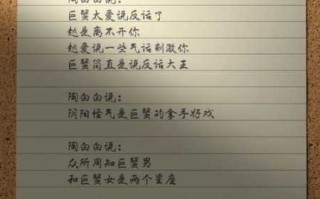 陶白白说：
巨蟹太爱说反话了
越是离不开你
越爱说一些气话刺激你
巨蟹简直是说反话大王
陶白白说：
阴阳怪气是巨蟹的拿手好戏
陶白白说：
众所周知巨蟹男
和巨蟹女是两个星座